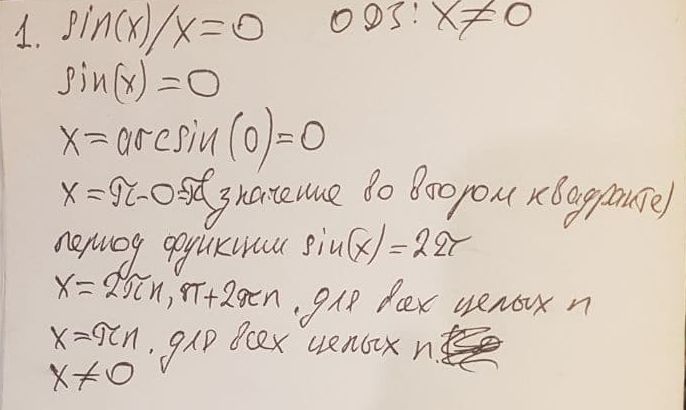 1. sin(x)/x=0 ОДЗ: x≠0
sin(x)=0
x=arcsin(0)=0
x=π-0=π(значение во втором квадранте)
период функции sin(x)=2π
x=2πn, π+2πn, для всех целых n
x=πn, для всех целых n.
x≠0